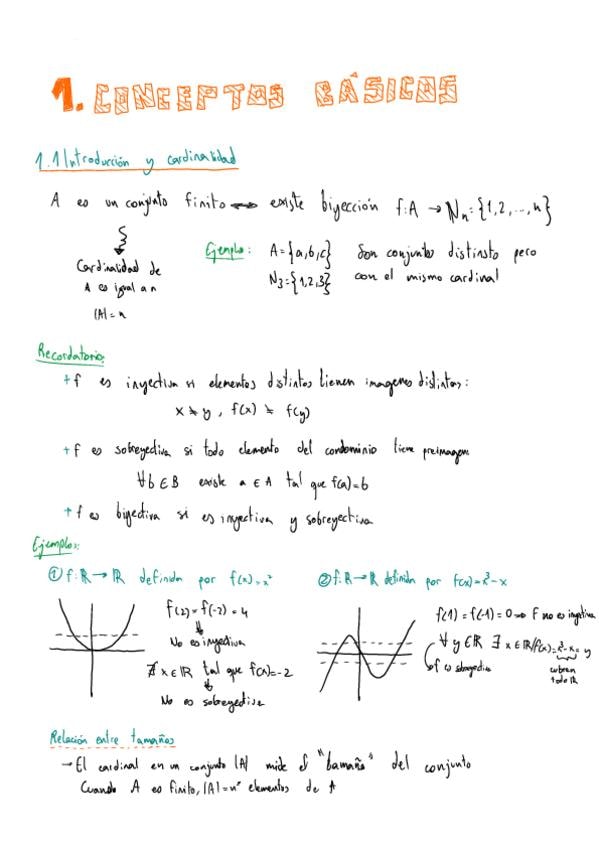 1. CONCEPTOS BÁSICOS
1.1 Introducción y cardinalidad
A es un conjunto finito ⟷ existe biyección f: A → ℕn = {1,2,...,n}
Cardinalidad de
A es igual a n
|A| = n
Ejemplo: A = {a,b,c} Son conjuntos distinsto pero
N3 = {1,2,3} con el mismo cardinal
Recordatorio:
+ f es inyectiva si elementos distintos tienen imagenes distintas:
x ≠ y , f(x) ≠ f(y)
+ f es sobreyectiva si todo elemento del condominio tiene preimagen
∀b ∈ B existe a ∈ A tal que f(a) = b
+ f es biyectiva si es inyectiva y sobreyectiva
Ejemplos:
① f: ℝ → ℝ definida por f(x) = x²
f(2) = f(-2) = 4
⇓
No es inyectiva
∄ x ∈ ℝ tal que f(x) = -2
⇓
No es sobreyectiva
② f: ℝ → ℝ definida por f(x) = x³ - x
f(1) = f(-1) = 0 ⇒ F no es inyectiva
∀ y ∈ ℝ ∃ x ∈ ℝ / f(x) = x³ - x = y
f es sobreyectiva
cubren
todo ℝ
Relación entre tamaños
→ El cardinal en un conjunto |A| mide el "tamaño" del conjunto
Cuando A es finito, |A| = nº elementos de A